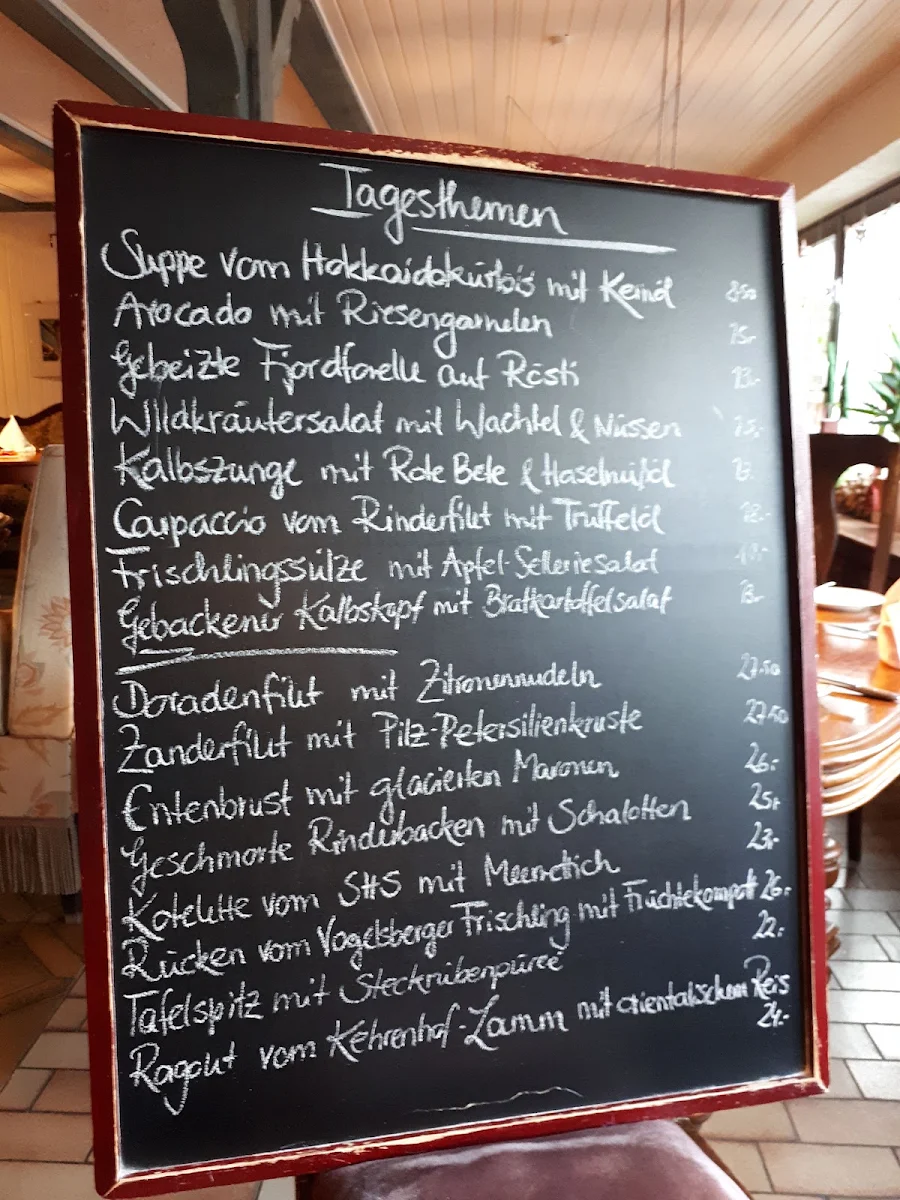 Tagesthemen
Suppe vom Hokkaidokürbis mit Kernöl 8.50
Avocado mit Riesengarnelen 15.-
Gebeizte Fjordforelle auf Rösti 13.-
Wildkräutersalat mit Wachtel & Nüssen
Kalbszunge mit Rote Bete & Haselnußöl 13.
Carpaccio vom Rinderfilet mit Trüffelöl
Frischlingssülze mit Apfel-Selleriesalat
Gebackener Kalbskopf mit Bratkartoffelsalat 13.-
Doradenfilet mit Zitronennudeln 27.50
Zanderfilet mit Pilz-Petersilienkruste 27.50
Entenbrust mit glacierten Maronen 26.-
Geschmorte Rinderbacken mit Schalotten 25.-
Kotelette vom SHS mit Meerrettich 23.-
Rücken vom Vogelsberger Frischling mit Früchtekompott 26.-
Tafelspitz mit Steckrübenpüree 22.-
Ragout vom Kehrenhof-Lamm mit orientalischem Reis 24.-